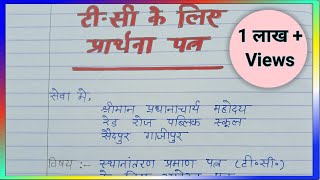 टी०सी के लिए
प्रार्थना पत्र
1 लाख +
Views
सेवा में,
श्रीमान प्रधानाचार्य महोदय
रेड रोज पब्लिक स्कूल
सैदपुर गाजीपुर
विषय :- स्थानांतरण प्रमाण पत्र (टी०सी०)
के लिए